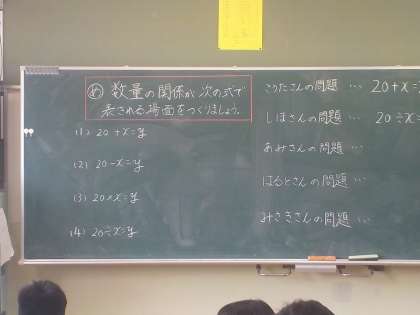 め 数量の関係が次の式で
表される場面をつくりましょう。
(1) 20+x=y
(2) 20-x=y
(3) 20×x=y
(4) 20÷x=y
こうたさんの問題 … 20+x=
しほさんの問題 … 20÷x=
あみさんの問題 …
はるとさんの問題 …
みさきさんの問題 …